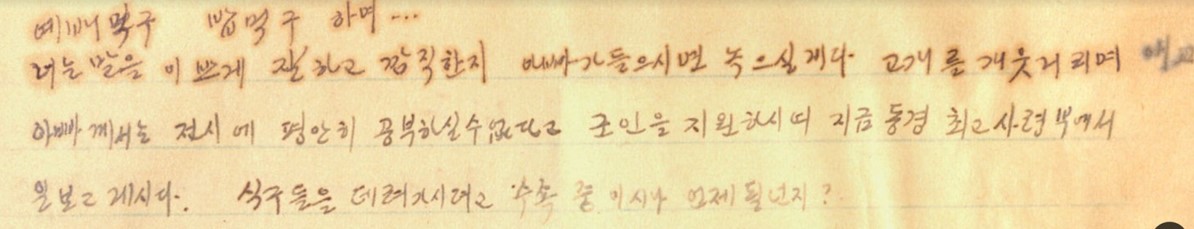 예배먹구 밥먹구 하며...
너는 말을 이쁘게 잘하고 깜직한지 아빠가 들으시면 녹으실게다. 고개를 개웃거리며
아빠께서는 전시에 평안히 공부하실수없다고 군인을 지원하시며 지금 동경 최고사령부에서
일보고 계시다. 식구들을 데려가시려고 수속 중이시나 언제 될넌지?